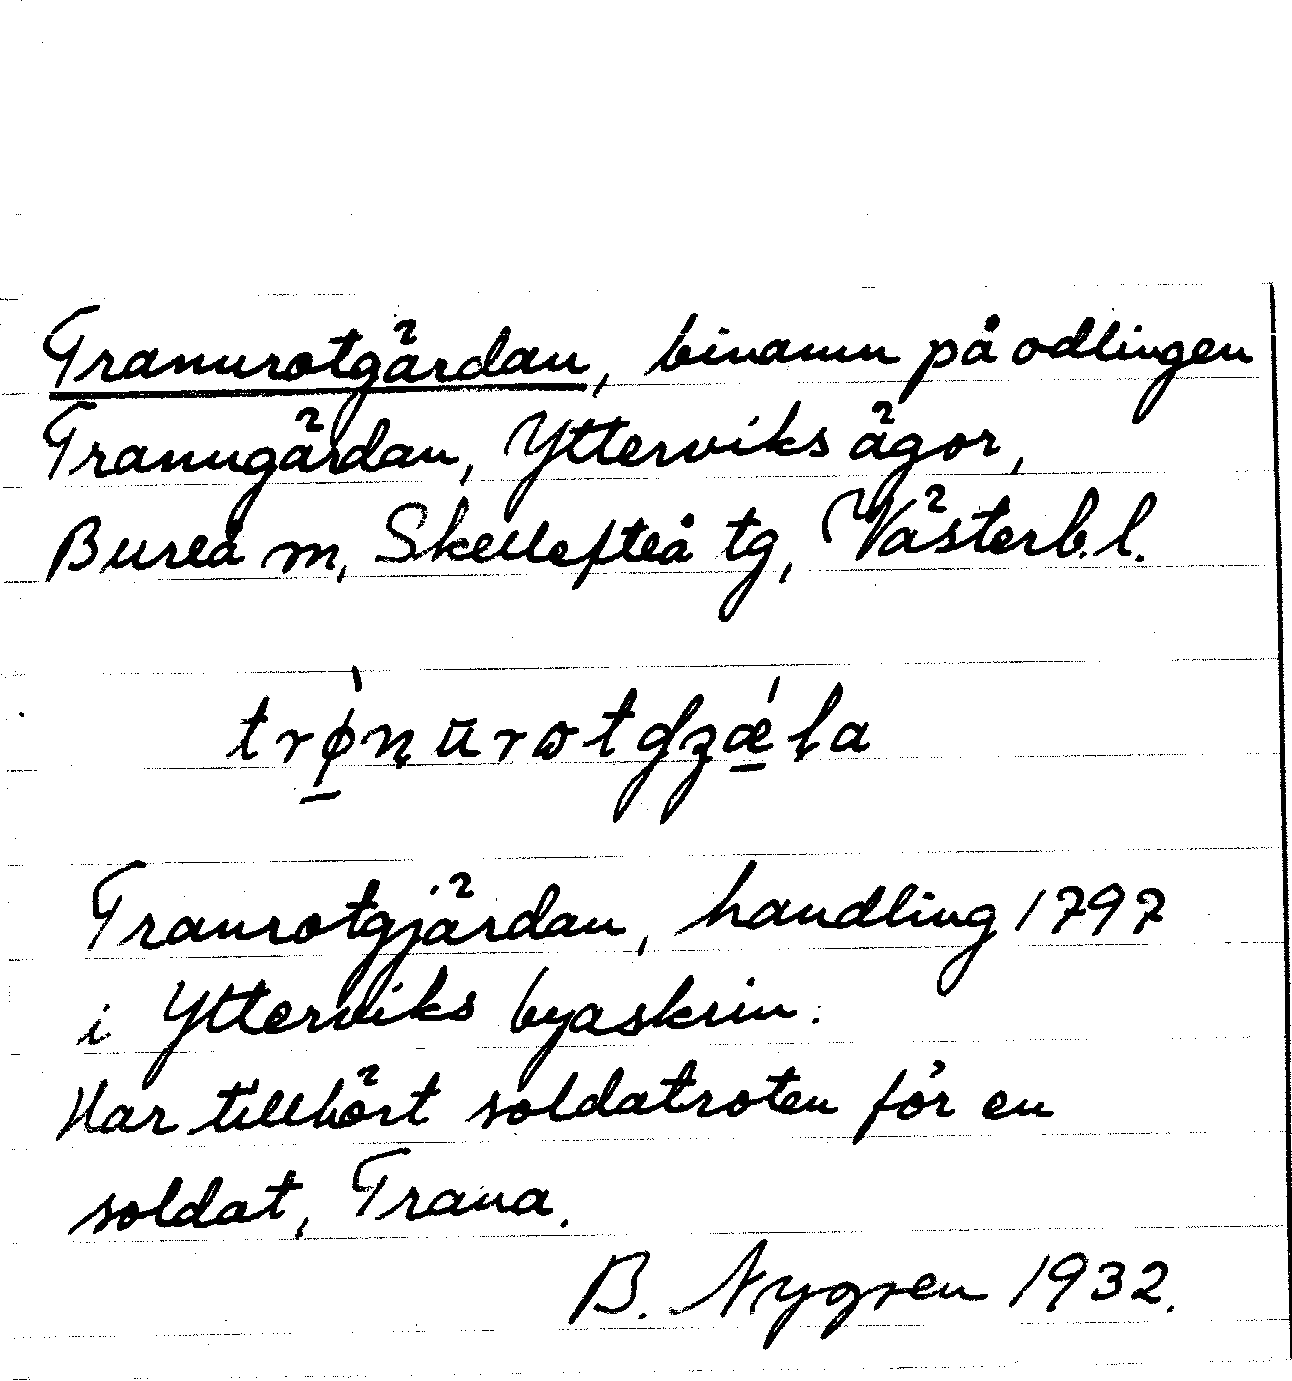 Tranurotgärdan, binamn på odlingen
Tranugärdan, Ytterviks ägor,
Bureå m, Skellefteå tg, Västerb. l.
trø̱̀ņūrɷtgʒǽ̱ḷa
Tranrotgjärdan, handling 1797
i Ytterviks byaskrin.
Har tillhört soldatroten för en
soldat, Trana.
B. Nygren 1932.